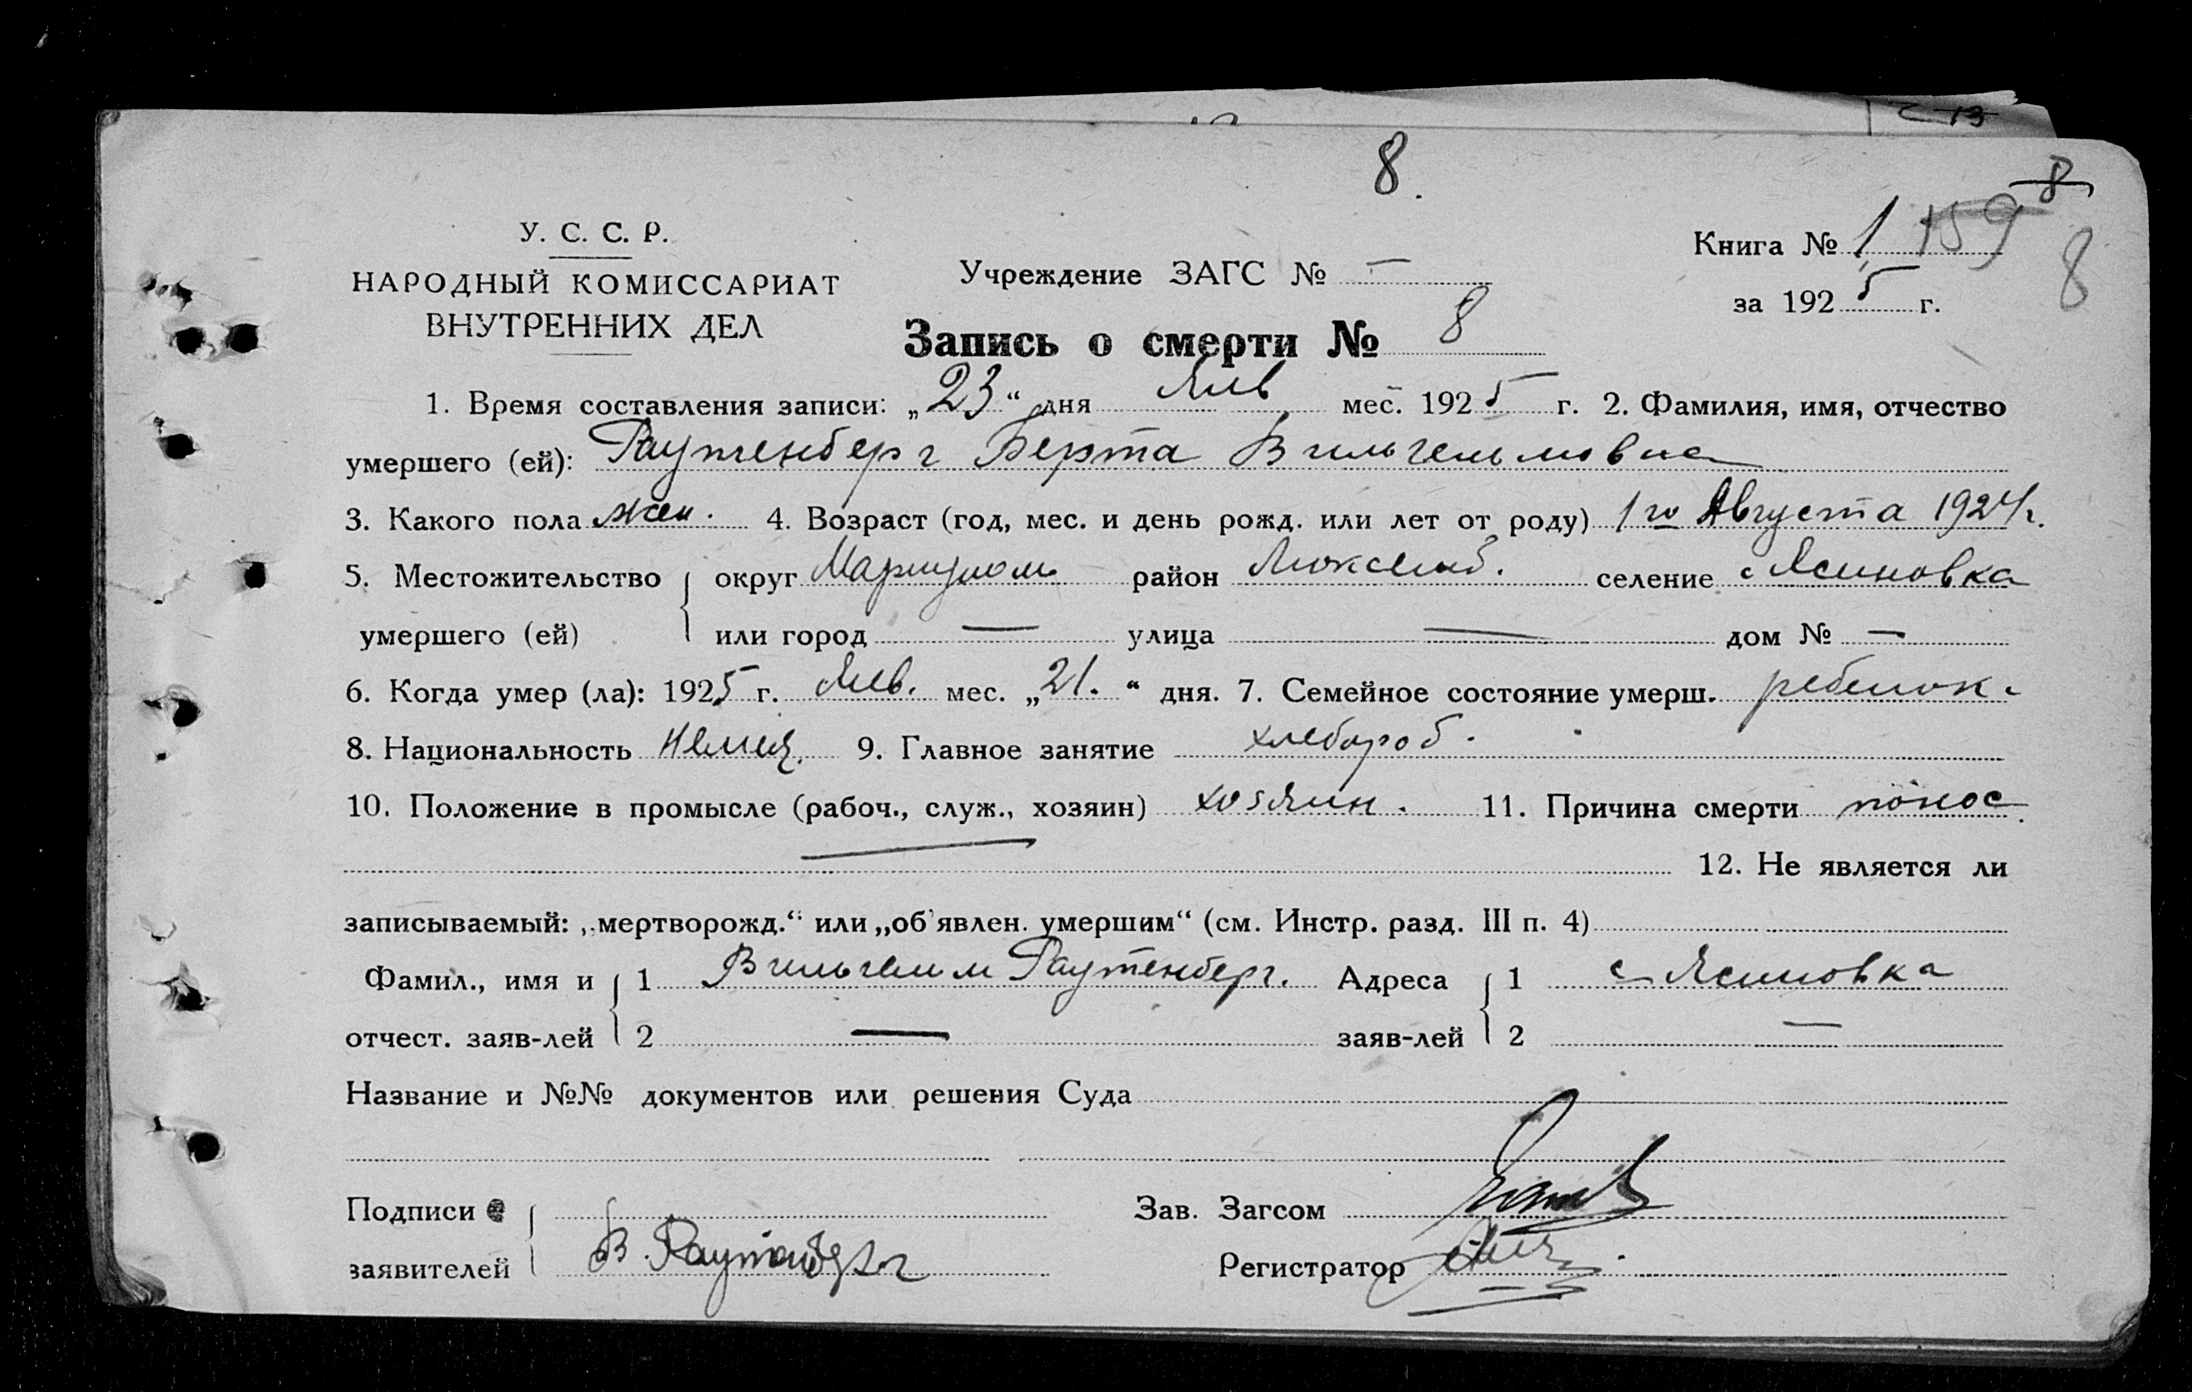 8.
8
У. С. С. Р.
НАРОДНЫЙ КОМИССАРИАТ
ВНУТРЕННИХ ДЕЛ
Учреждение ЗАГС № —
Книга № 1 159
8
за 1925 г.
Запись о смерти № 8
1. Время составления записи: „23“ дня Янв мес. 1925 г. 2. Фамилия, имя, отчество
умершего (ей): Раутенберг Берта Вильгельмовна
3. Какого пола жен. 4. Возраст (год, мес. и день рожд. или лет от роду) 1го Августа 1924г.
5. Местожительство округ Мариупол район селение с Ясиновка
умершего (ей) или город — улица — дом № —
6. Когда умер (ла): 1925 г. Янв. мес. „21.“ дня. 7. Семейное состояние умерш. ребенок.
8. Национальность 9. Главное занятие хлебороб.
10. Положение в промысле (рабоч., служ., хозяин) хозяин. 11. Причина смерти понос.
— 12. Не является ли
записываемый: „мертворожд.“ или „об'явлен. умершим“ (см. Инстр. разд. III п. 4)
Фамил., имя и 1 Вильгельм Раутенберг. Адреса 1 с Ясиновка
отчест. заяв-лей 2 — заяв-лей 2 —
Название и №№ документов или решения Суда
Подписи Зав. Загсом
заявителей В. Раутенберг Регистратор